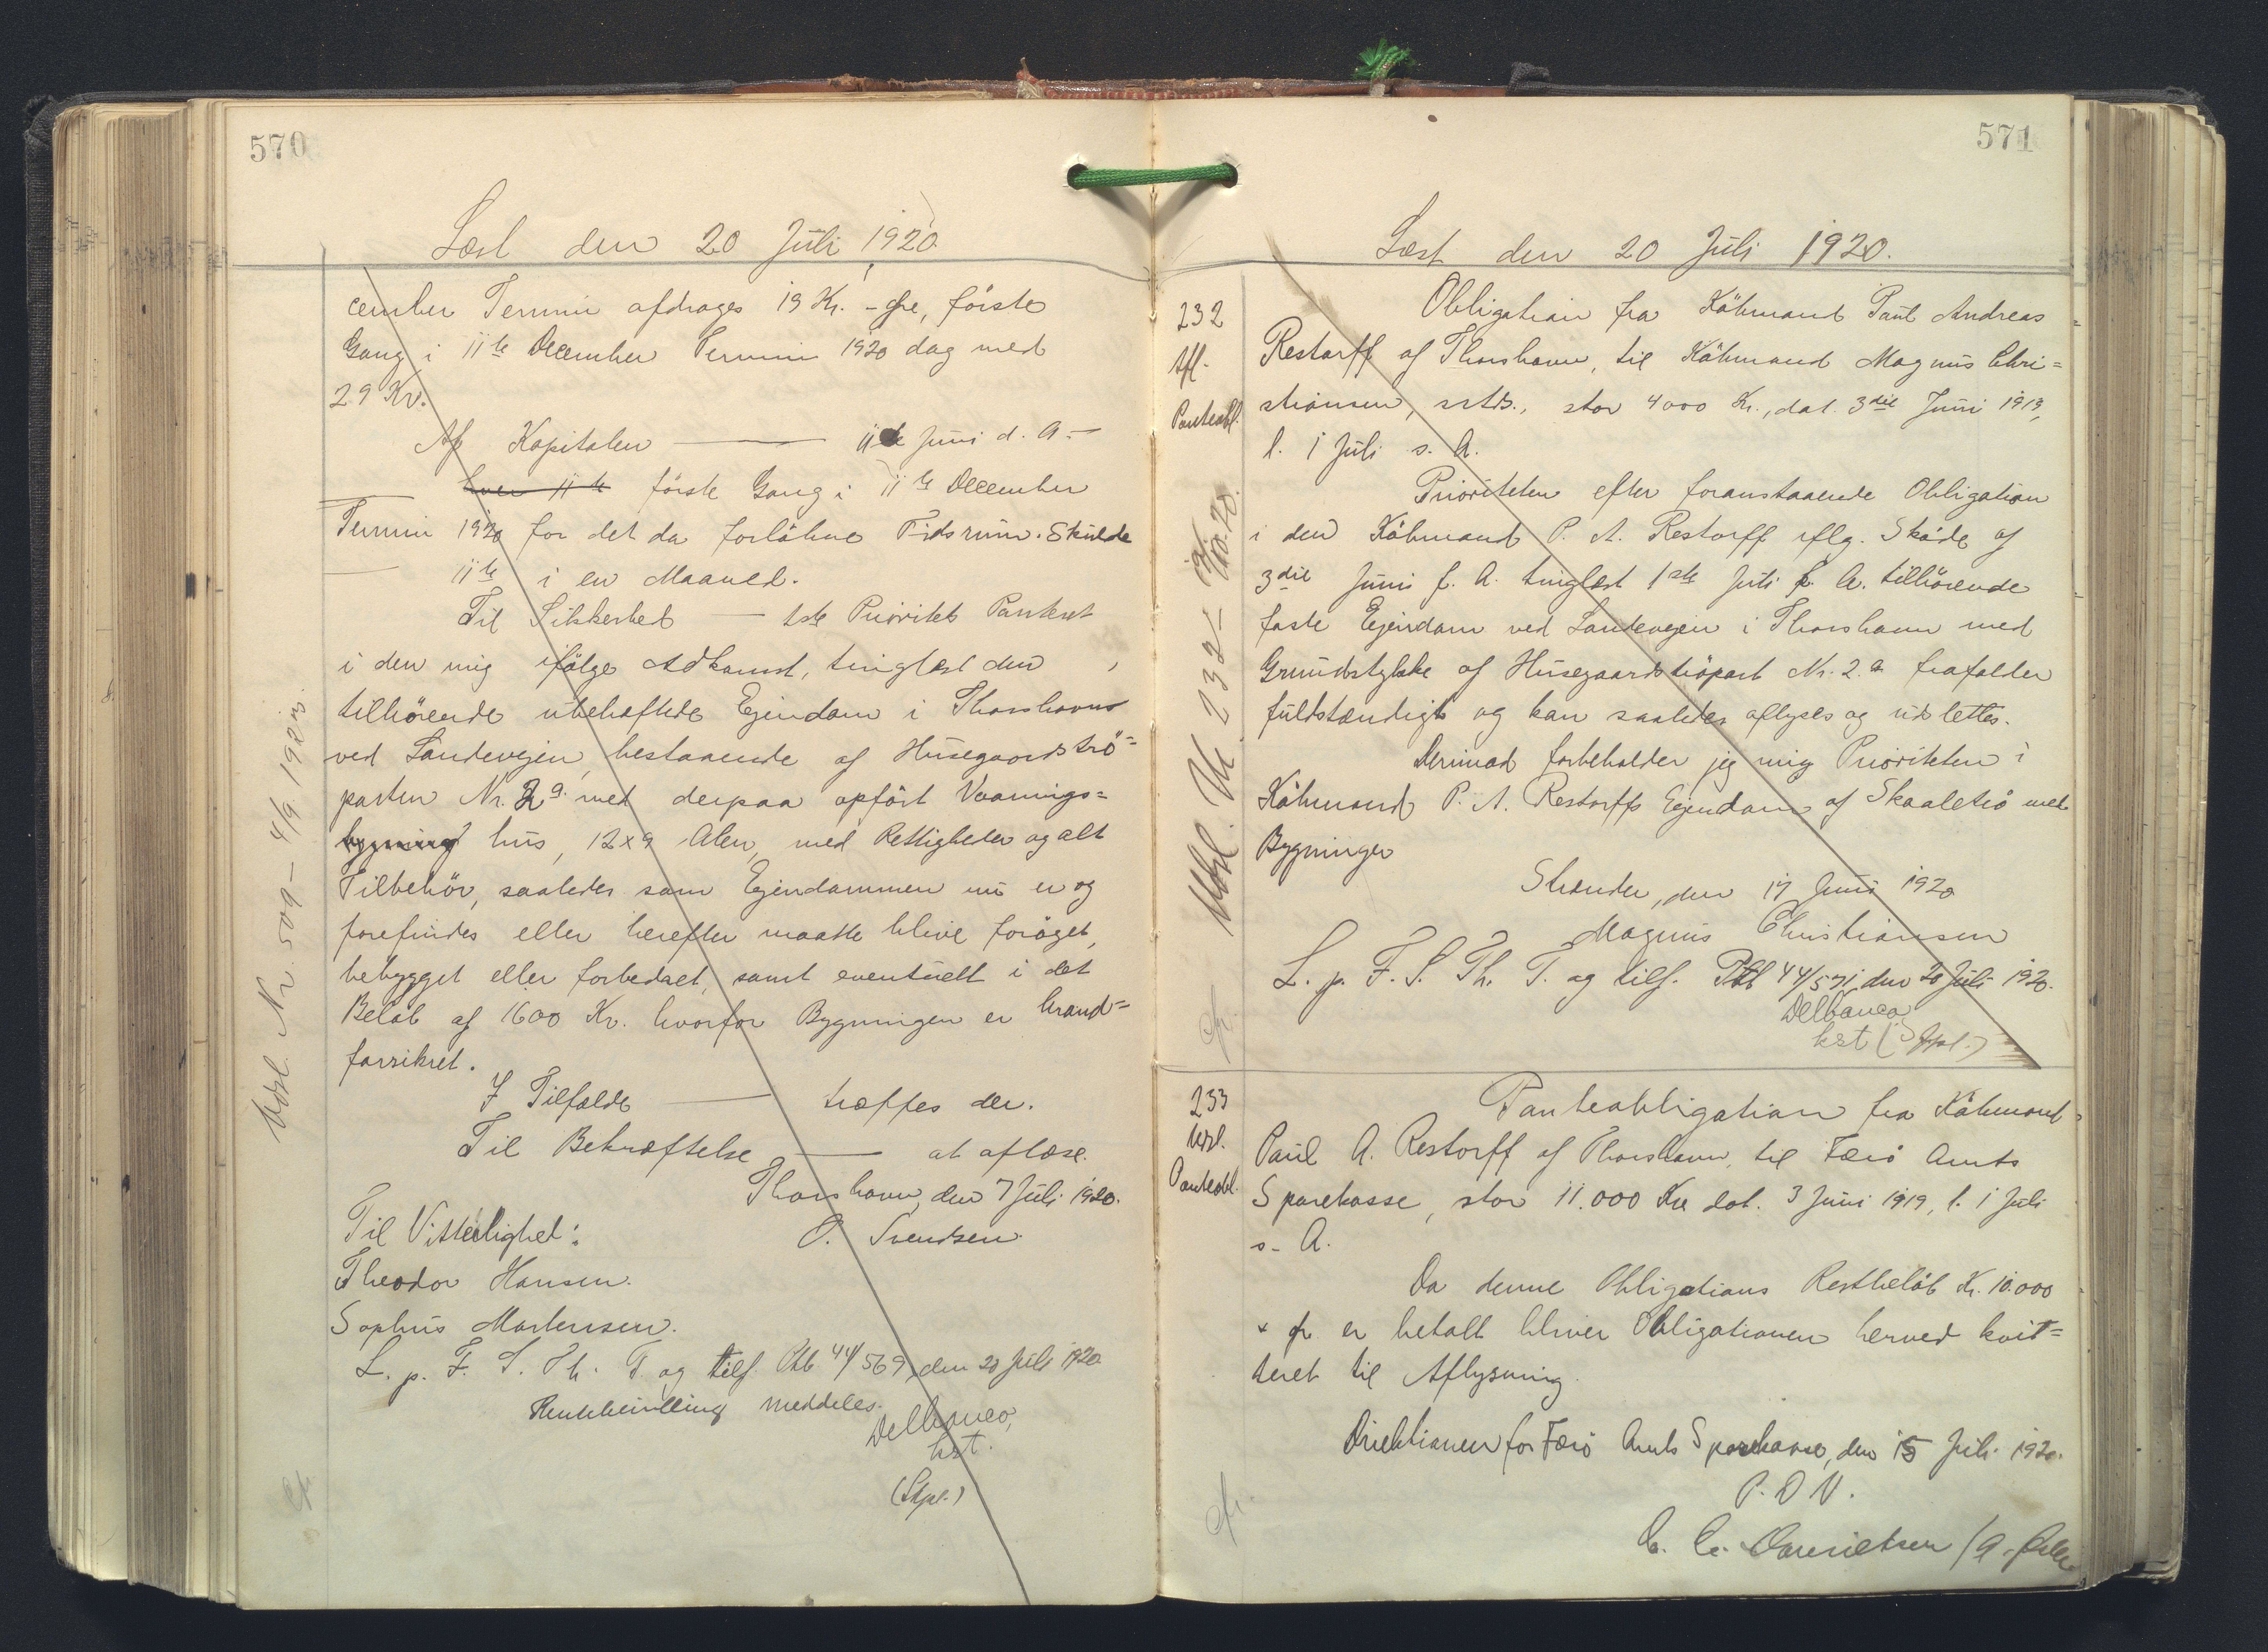 570
Læst den 20 Juli 1920
cember Termin afdrages 19 Kr. - Øre, första
Gang i 11te December Termin 1920 dog med
29 Kr.
Af Kapitalen — 11te Juni d. A. —
hver 11te förste Gang i 11te December
Termin 1920 for det da forløbne Tidsrum. Skulde
— 11te i en Maaned.
Til Sikkerhed — 1ste Prioritets Panteret
i den mig ifølge Adkomst, tinglæst den ,
tilhörende ubehæftede Ejendom i Thorshavn
ved Landevejen, bestaaende af Husegaardströ=
parten Nr. 2 a. med derpaa opfört Vaanings=
bygning hus, 12x9 Alen, med Rettigheder og alt
Tilbehör, saaledes som Ejendommen nu er og
forefindes eller herefter maatte blive foröget,
bebygget eller forbedret, samt eventuelt i det
Beløb af 1600 Kr. hvorfor Bygningen er brand=
forsikret.
I Tilfælde — træffes der.
Til Bekræftelse — at aflæse.
Thorshavn, den 7 Juli 1920.
Til Vitterlighed: O. Svendsen
Theodor Hansen.
Sophus Mortensen.
L. p. F. S. Th. T. og tilf. Ptb 44/569, den 20 Juli 1920
meddeles.
Delbanco,
kst.
(Stpl.)
Udsl. Nr. 509 — 4/9 1923.
571
Læst den 20 Juli 1920.
232
Afl.
Panteobl.
Obligation fra Købmand Paul Andreas
Restorff af Thorshavn, til Købmand Magnus Chri=
stiansen, sstds., stor 4000 Kr., dat. 3die Juni 1919,
l. 1 Juli s. A.
Prioriteten efter foranstaaende Obligation
i den Købmand P. A. Restorff iflg. Skøde af
3die Juni f. A. tinglæst 1ste Juli f. A. tilhörende
faste Ejendom ved Landevejen i Thorshavn med
Grundstykke af Husegaardströpart Nr. 2 a frafalder
fuldstændigt og kan saaledes aflyses og udslettes.
Derimod forbeholder jeg mig Prioriteten i
Købmand P. A. Restorffs Ejendom af Skaaletrö med
Bygninger
Strender, den 17 Juni 1920
Magnus Christiansen
L. p. F. S. Th. T. og tilf. Ptb 44/571, den 20 Juli 1920.
Delbanco
kst (Stpl.)
233
Udsl.
Panteobl.
Panteobligation fra Købmand
Paul A. Restorff af Thorshavn, til Færö Amts
Sparekasse, stor 11.000 Kr dat. 3 Juni 1919, l. 1 Juli
s. A.
Da denne Obligations Restbeløb Kr. 10.000
er betalt bliver Obligationen herved kvit=
teret til Aflysning.
Direktionen for Færö Amts Sparekasse, den 15 Juli 1920.
P. D V.
C. C. Danielsen /